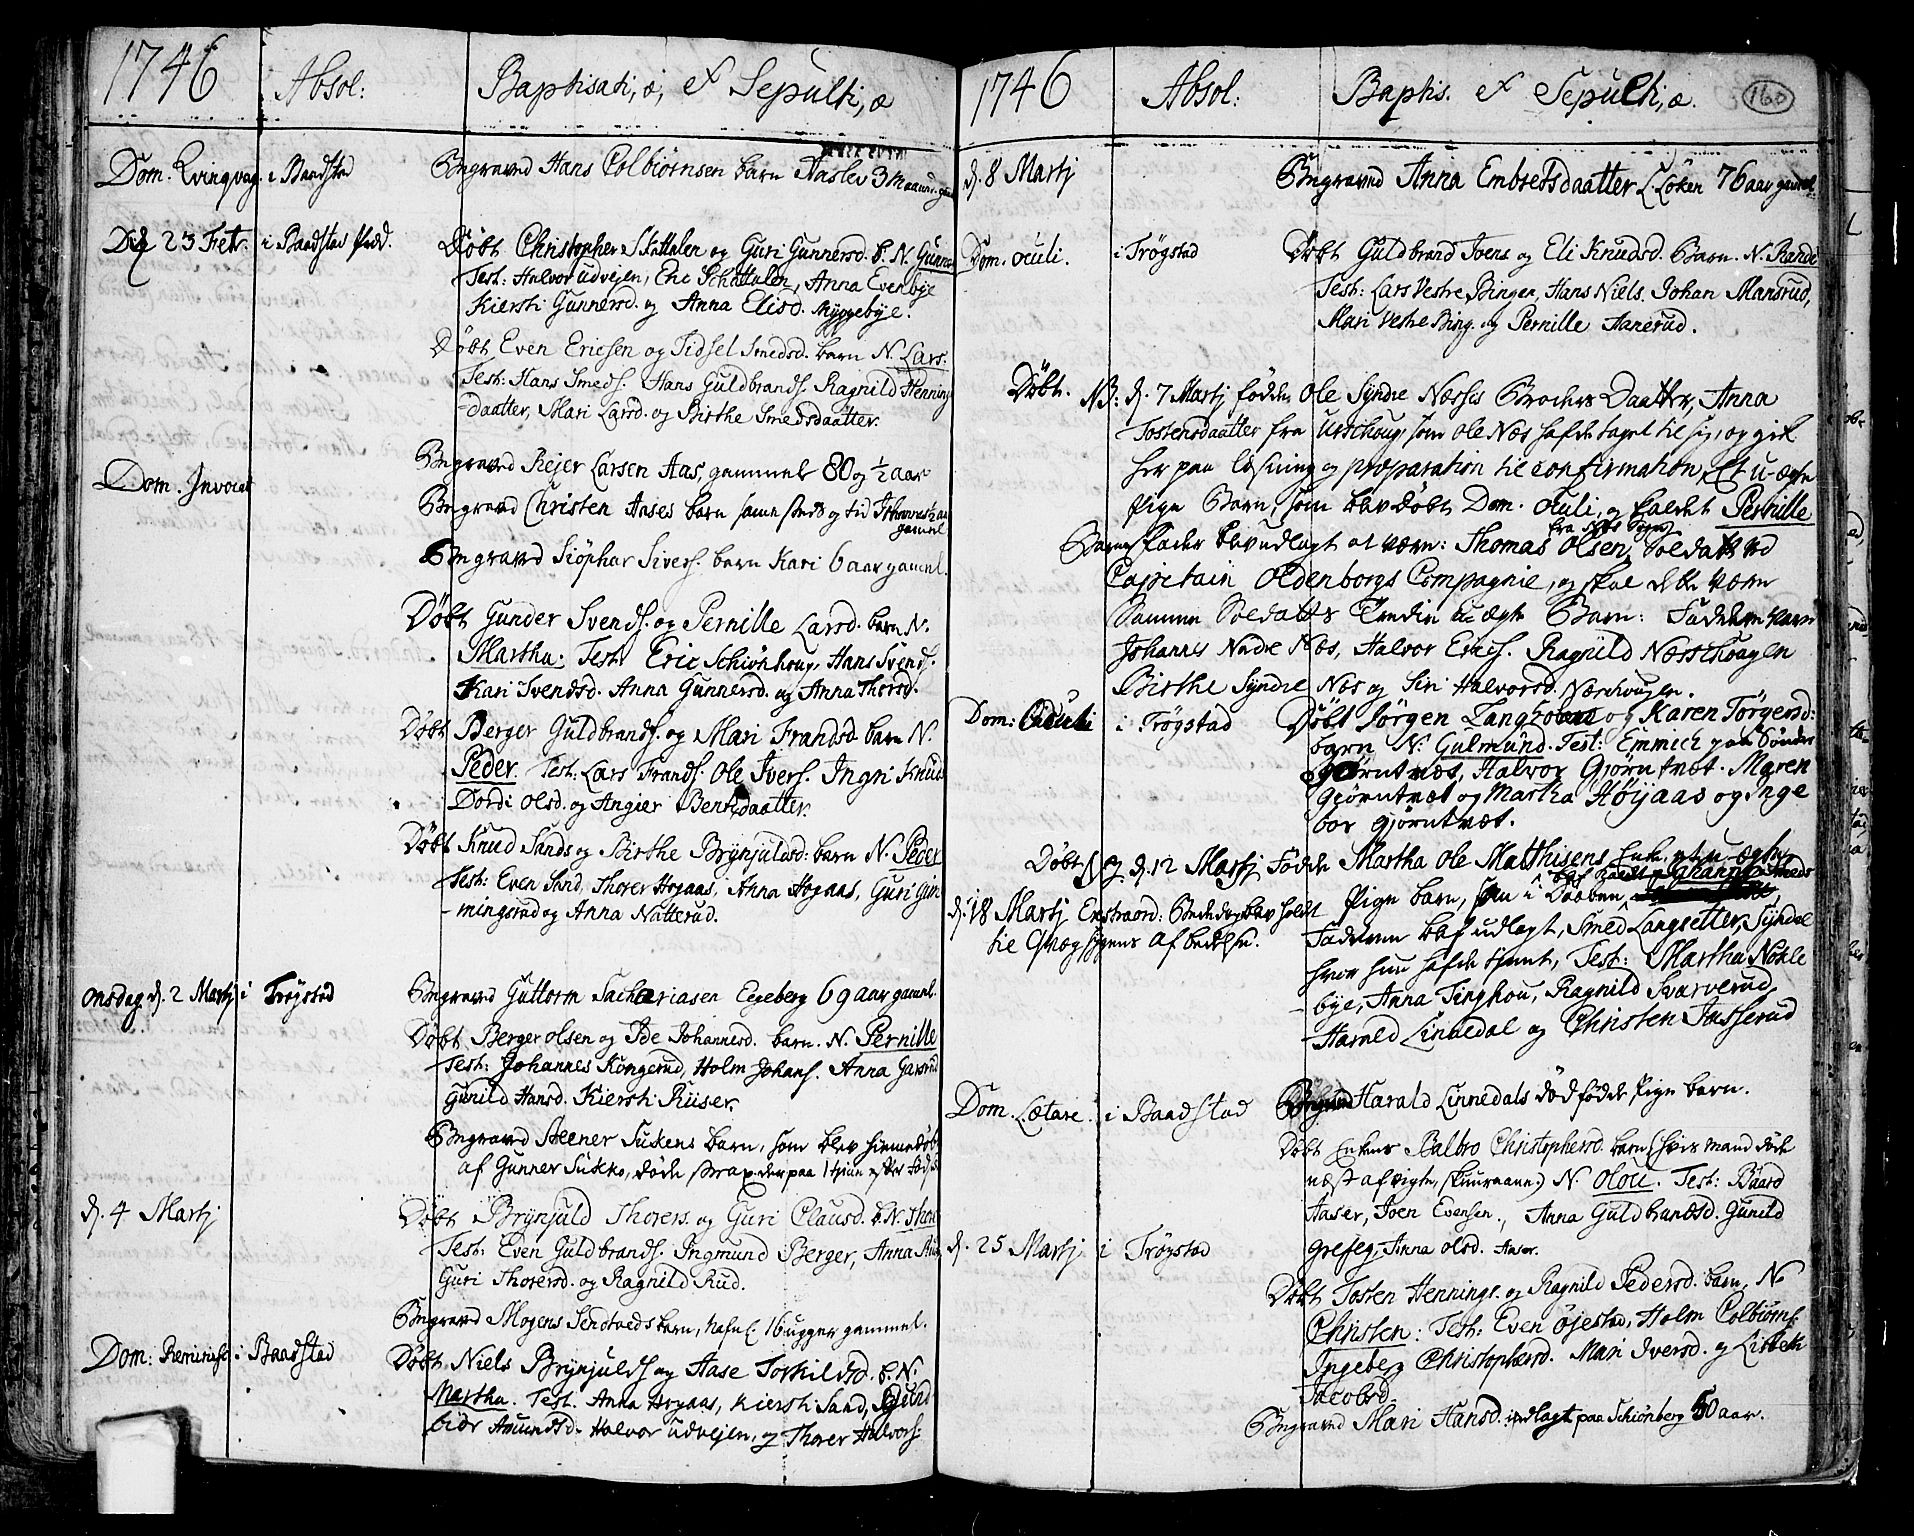 1746
Absol:
Baptisati, æ, et Sepulti, æ
Dom. Qvinqvag. i Baadstad
Begraved Hans Colbiørnsen barn Aaslev 3 maaned. gam
D. 23 Febr. i Baadstad præd.
Døbt Christopher Skattalen og Guri Gunnersd. b. N. Gunner
Test: Halvor udvejen, Eric Schattalen, Anna Evenbye
Kiersti Gunnersd. og Anna Elisd. Myggebye.
Døbt Even Ericsen og Sidsel Smedsd. barn N. Lars.
Test: Hans Smeds. Hans Guldbrands. Ragnild Henning
-daatter, Mari Larsd. og Birthe Smedsdaatter.
Dom. Invocat
Begraved Rejer Larsen Aas, gammel 80 og ½ aar
Begraved Christen Aases barn samme sted og tid Johannes ½ aar
gammel
Begraved Siøphar Sivers. barn Kari 6 aar gamml.
Døbt Gunder Svends. og Pernille Larsd. barn N.
Martha. Test: Eric Schiønhoug, Hans Svends.
Kari Svendsd. Anna Gunnersd. og Anna Thorsd.
Døbt Berger Guldbrands. og Mari Frandsd. barn N.
Peder. Test: Lars Frands. Ole Ivers. Ingri Knuds
Dordi Olsd. og Angier Bentsdaatter.
Døbt Knud Sands og Birthe Brynjulsd: barn N. Peder
Test: Even Sand, Thorer Hogaas, Anna Hogaas, Guri Gim
-mingsrud og Anna Natterud.
Onsdag d. 2 Martj i Trøgstad
Begraved Guttorm Sachariasen Egeberg 69 aar gamml.
Døbt Berger Olsen og Ide Johannesd. barn. N. Pernille
Test: Johannes Kongerud, Holm Johans. Anna Garsrud
Gunild Hansd. Kiersti Ruser.
Begraved Steener Suckens barn, som blev hiemmedøbt
af Gunner Sukko, døde strax derpaa 1 time efter fødsel
d. 4 Martj
Døbt Brynjuld Thorers. og Guri Clausd. b. N. Thore
Test: Even Guldbrands. Ingmund Berger, Anna Rud
Guri Thorersd. og Ragnild Rud.
Begraved Mogens Sendtveds barn, nafnl. 16 uger gammel.
Dom: Reminisc. i Baadstad
Døbt Niels Brynjulds og Aase Torkildsd. b. N.
Martha. Test. Anna Hogaas, Kiersti Sand, Gund
bior Amundsd. Halvor Udvejen, og Thorer Halvors.
1746
Absol:
Baptis. et Sepulti, æ.
160
d. 8 Martj
Begraved Anna Embretsdaatter L. Løken 76 aar gammel
Dom. Oculi. i Trøgstad
Døbt Guldbrand Joens og Eli Knudsd. Barn. N. Rande
Test: Lars Vestre Binger, Hans Niels. Johan Mansrud,
Mari Vestre Bing. og Pernille Aanerud.
Døbt. NB: d. 7 Martj fødde Ole Syndre Næsses Broders Daatter, Anna
Tostensdaatter fra Urschoug, som Ole Næs hafde taget til sig, og gik
her paa læsning og præparation til confirmation, Et u-ægte
Pige Barn, som blev døbt Dom. Oculi, og kaldet Pernille
fra Næs Sogn
Barnefader blev udlagt at være: Thomas Olsen, Soldat ved
Capitain Oldenborgs Compagnie, og skal dette være
Samme Soldats Tredie U-ægte Barn: Fadderne vare
Johannes Nedre Næs, Halvor Erics. Ragnild Næsskougen
Birthe Syndre Næs og Siri Halvorsd. Næsskougen.
Dom: Oculi i Trøgstad
Døbt Jørgen Langsæter og Karen Jørgersd:
barn N: Gulmund. Test: Emmich paa Sønder
Gjørntvæs, Halvor Gjørntvæt. Maren
Gjørntvæt og Martha Høijaas og Inge
bor Gjørntvæt.
Døbt Og d. 12 Martj Fødde Martha Ole Matthisens Enke, et u-ægte
Pige barn, som i Daaben blef kaldt Johanna Smeds
d. 18 Martj Extraord: Bededag blev holdt
til Qvægsygens afbedelse.
Faderen blef udlagt, Smed Langsetter, Syndal
hvor hun hafde tjent, Test: Martha Nokle
-bye, Anna Tinghou, Ragnild Svarverud,
Harald Linnedal og Christen Jasserud
Dom. Lætare. i Baadstad
Begraved Harald Linnedals dødfødde Pige barn.
Døbt Enkens Aalbro Christophersd. barn (hvis mand døde
næst afvigte, Skuuraane.) N. Olou. Test: Baard
Aaser, Joen Evensen., Anna Guldbrandsd. Gunild
Grefeg, Anna Olsd. Aaser.
d. 25 Martj i Trøgstad
Døbt Tosten Hennings. og Ragnild Pedersd. barn, N.
Christen: Test: Even Øjestad, Holm Colbiørns.
Ingeberg Christophersd. Mari Iversd. og Lisbeth
Jacobsd.
Begraved Mari Hansd. indlagt paa Schiønberg 50 aar.